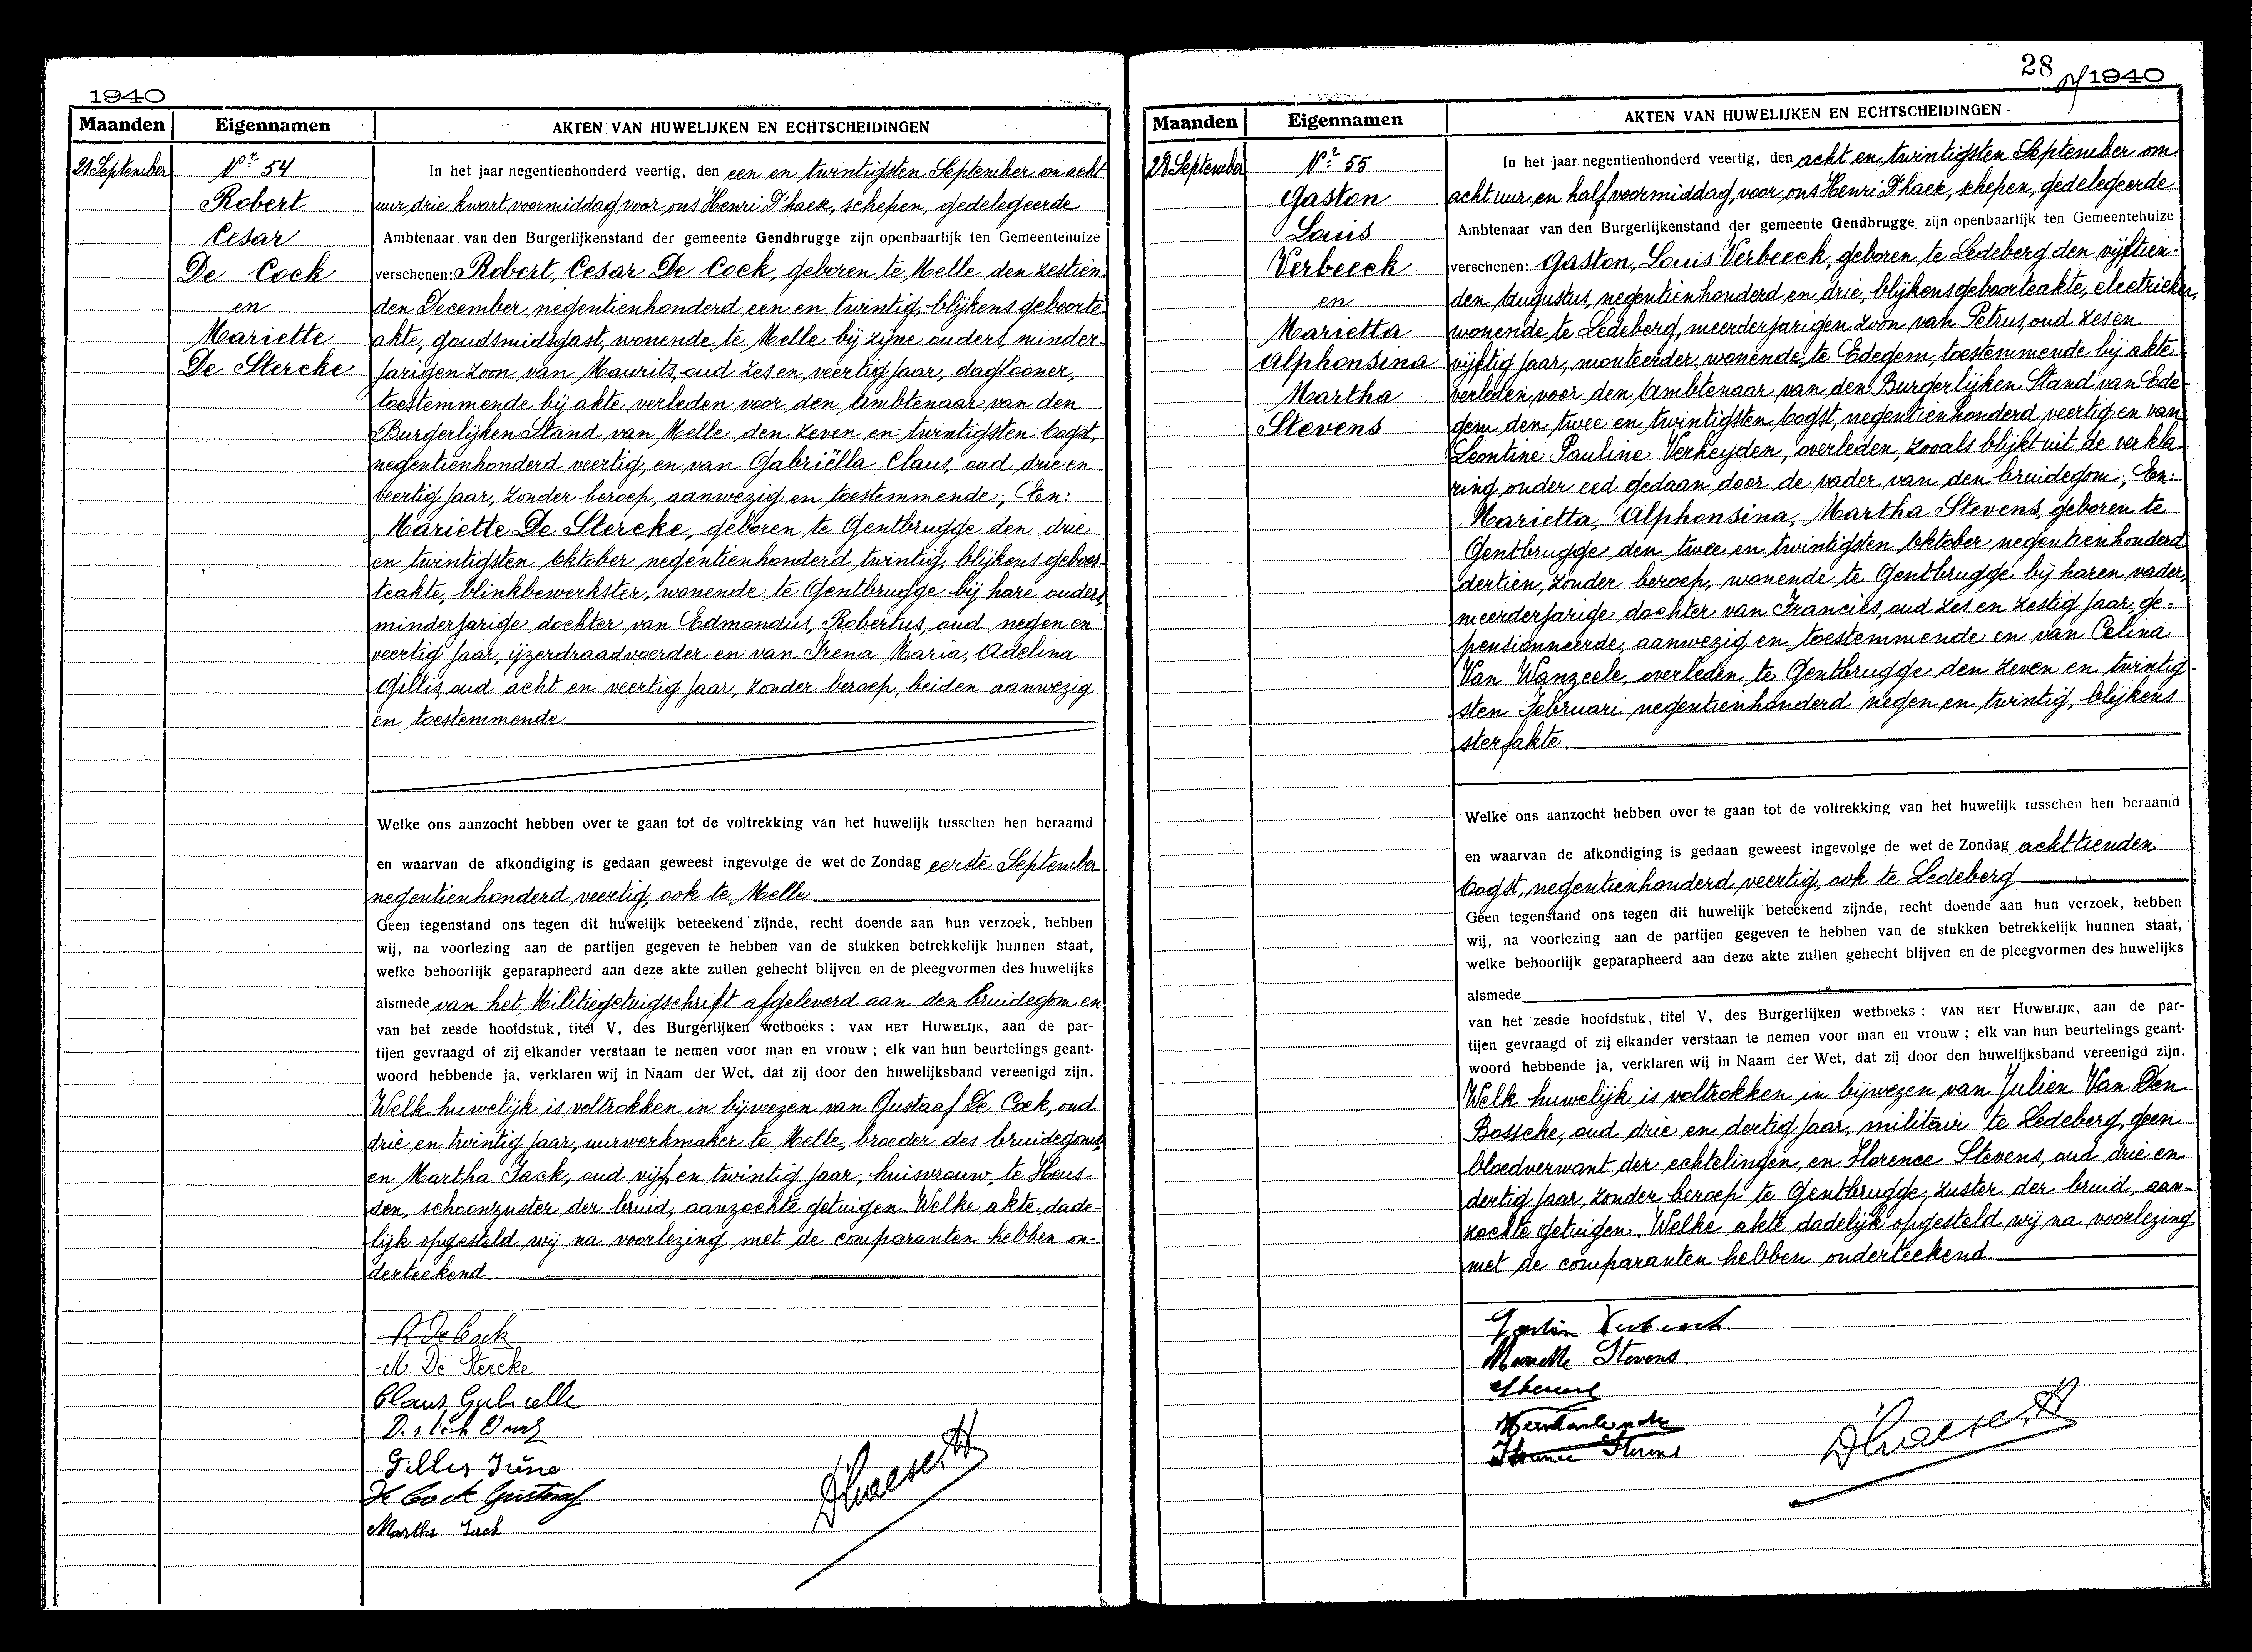 1940
Maanden
Eigennamen
AKTEN VAN HUWELIJKEN EN ECHTSCHEIDINGEN
21 September
Nr 54
Robert
Cesar
De Cock
en
Mariette
De Stercke
In het jaar negentienhonderd veertig, den een en twintigsten September om acht
uur, drie kwart voormiddag, voor ons Henri D'haese, schepen, gedelegeerde
Ambtenaar van den Burgerlijkenstand der gemeente Gendbrugge zijn openbaarlijk ten Gemeentehuize
verschenen: Robert, Cesar De Cock, geboren te Melle den zestien-
den December negentienhonderd een en twintig, blijkens geboorte-
akte, goudsmidsgast, wonende te Melle bij zijne ouders, minder-
jarigen zoon van Maurits, oud zes en veertig jaar, daglooner,
toestemmende bij akte verleden voor den Ambtenaar van den
Burgerlijken Stand van Melle den zeven en twintigsten Oogst,
negentienhonderd veertig, en van Gabriëlla Claus, oud drie en
veertig jaar, zonder beroep, aanwezig en toestemmende; En:
Mariette De Stercke, geboren te Gentbrugge den drie
en twintigsten Oktober negentienhonderd twintig, blijkens geboor-
teakte, blinkbewerkster, wonende te Gentbrugge bij hare ouders,
minderjarige dochter van Edmondus, Robertus, oud negen en
veertig jaar, ijzerdraadvoerder en van Irena Maria, Adelina
Gillis, oud acht en veertig jaar, zonder beroep, beiden aanwezig
en toestemmende
Welke ons aanzocht hebben over te gaan tot de voltrekking van het huwelijk tusschen hen beraamd
en waarvan de afkondiging is gedaan geweest ingevolge de wet de Zondag eerste September
negentienhonderd veertig, ook te Melle
Geen tegenstand ons tegen dit huwelijk beteekend zijnde, recht doende aan hun verzoek, hebben
wij, na voorlezing aan de partijen gegeven te hebben van de stukken betrekkelijk hunnen staat,
welke behoorlijk geparapheerd aan deze akte zullen gehecht blijven en de pleegvormen des huwelijks
alsmede van het Militiegetuigschrift afgeleverd aan den bruidegom en
van het zesde hoofdstuk, titel V, des Burgerlijken wetboeks : VAN HET HUWELIJK, aan de par-
tijen gevraagd of zij elkander verstaan te nemen voor man en vrouw ; elk van hun beurtelings geant-
woord hebbende ja, verklaren wij in Naam der Wet, dat zij door den huwelijksband vereenigd zijn.
Welk huwelijk is voltrokken in bijwezen van Gustaaf De Cock, oud
drie en twintig jaar, uurwerkmaker te Melle, broeder des bruidegoms,
en Martha Jack, oud vijf en twintig jaar, huisvrouw, te Heus-
den, schoonzuster der bruid, aanzochte getuigen. Welke akte dade-
lijk opgesteld wij na voorlezing met de comparanten hebben on-
derteekend.
R De Cock
M. De Stercke
Claus Gabrielle
Gillis Irène
De Cock Gustaaf
Martha Jack
D'haese H
28
1940
Maanden
Eigennamen
AKTEN VAN HUWELIJKEN EN ECHTSCHEIDINGEN
28 September
Nr 55
Gaston
Louis
Verbeeck
en
Marietta
Alphonsina
Martha
Stevens
In het jaar negentienhonderd veertig, den acht en twintigsten September om
acht uur en half voormiddag, voor ons Henri D'haese, schepen, gedelegeerde
Ambtenaar van den Burgerlijkenstand der gemeente Gendbrugge zijn openbaarlijk ten Gemeentehuize
verschenen: Gaston, Louis Verbeeck, geboren te Ledeberg den vijftien-
den Augustus, negentienhonderd en drie, blijkens geboorteakte, electrieker,
wonende te Ledeberg, meerderjarigen zoon van Petrus, oud zes en
vijftig jaar, monteerder, wonende te Edegem, toestemmende bij akte
verleden voor den Ambtenaar van den Burgerlijken Stand van Ede-
gem den twee en twintigsten Oogst, negentienhonderd veertig en van
Leontine Pauline Verheyden, overleden, zooals blijkt uit de verkla-
ring onder eed gedaan door de vader van den bruidegom; En:
Marietta, Alphonsina, Martha Stevens, geboren te
Gentbrugge den twee en twintigsten Oktober negentienhonderd
dertien, zonder beroep, wonende te Gentbrugge bij haren vader,
meerderjarige dochter van Franciës, oud zes en zestig jaar, ge-
pensionneerde, aanwezig en toestemmende en van Celina
Van Wanzeele, overleden te Gentbrugge den zeven en twintig-
sten Februari negentienhonderd negen en twintig, blijkens
sterfakte.
Welke ons aanzocht hebben over te gaan tot de voltrekking van het huwelijk tusschen hen beraamd
en waarvan de afkondiging is gedaan geweest ingevolge de wet de Zondag achttienden
Oogst, negentienhonderd veertig, ook te Ledeberg
Geen tegenstand ons tegen dit huwelijk beteekend zijnde, recht doende aan hun verzoek, hebben
wij, na voorlezing aan de partijen gegeven te hebben van de stukken betrekkelijk hunnen staat,
welke behoorlijk geparapheerd aan deze akte zullen gehecht blijven en de pleegvormen des huwelijks
alsmede
van het zesde hoofdstuk, titel V, des Burgerlijken wetboeks : VAN HET HUWELIJK, aan de par-
tijen gevraagd of zij elkander verstaan te nemen voor man en vrouw ; elk van hun beurtelings geant-
woord hebbende ja, verklaren wij in Naam der Wet, dat zij door den huwelijksband vereenigd zijn.
Welk huwelijk is voltrokken in bijwezen van Julien Van Den
Bossche, oud drie en dertig jaar, militair te Ledeberg, geen
bloedverwant der echtelingen, en Florence Stevens, oud drie en
dertig jaar, zonder beroep te Gentbrugge, zuster der bruid, aan-
zochte getuigen. Welke akte dadelijk opgesteld wij na voorlezing
met de comparanten hebben onderteekend.
Gaston Verbeeck.
Mariette Stevens
Florence Stevens
D'haese H